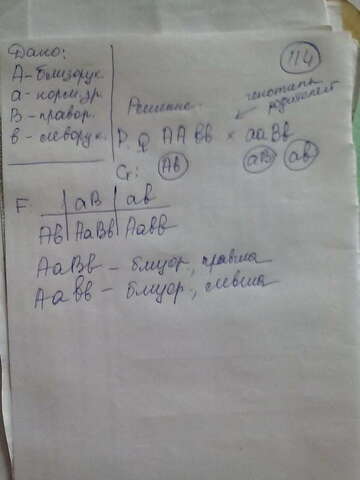 Дано:
А - близорук.
а - норм.зр.
В - правор.
в - леворук.
114
Решение.
генотипы
родителей
Р. ♀ ААвв × ааВв
G: Ав аВ ав
F
аВ ав
Ав АаВв Аавв
АаВв - близор., правша
Аавв - близор., левша